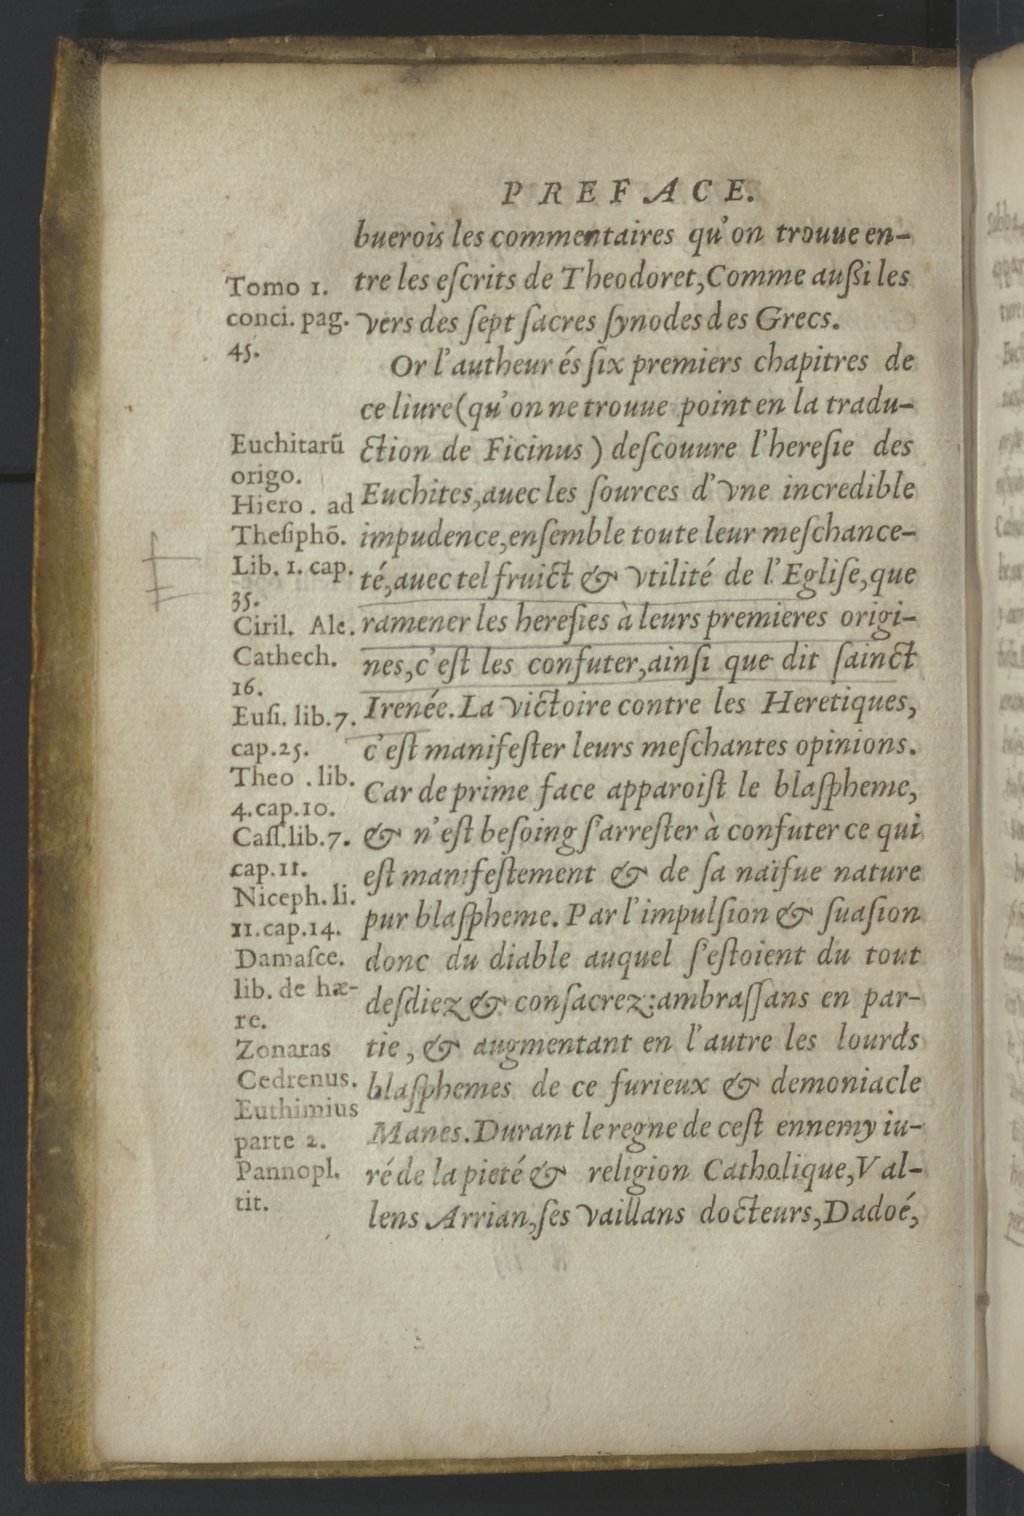 PREFACE.
buerois les commentaires qu'on trouue en-
tre les eſcrits de Theodoret,Comme außi les
vers des ſept ſacres ſynodes des Grecs.
Or l'autheur és ſix premiers chapitres de
ce liure(qu'on ne trouue point en la tradu-
ction de Ficinus) deſcouure l'hereſie des
Euchites,auec les ſources d'vne incredible
impudence,enſemble toute leur meſchance-
té,auec tel fruict & vtilité de l'Egliſe,que
ramener les hereſies à leurs premieres origi-
nes,c'eſt les confuter,ainſi que dit ſainct
Irenée.La victoire contre les Heretiques,
c'eſt manifeſter leurs meſchantes opinions.
Car de prime face apparoiſt le blaſpheme,
& n'eſt beſoing ſ'arreſter à confuter ce qui
eſt manifeſtement & de ſa naïfue nature
pur blaſpheme.Par l'impulſion & ſuaſion
donc du diable auquel ſ'eſtoient du tout
deſdiez & conſacrez:ambraſſans en par-
tie, & augmentant en l'autre les lourds
blaſphemes de ce furieux & demoniacle
Manes.Durant le regne de ceſt ennemy iu-
ré de la pieté & religion Catholique,Val-
lens Arrian,ſes vaillans docteurs,Dadoé,
Tomo 1.
conci. pag.
45.
Euchitarū
origo.
Hiero. ad
Theſiphō.
Lib. 1. cap.
35.
Ciril. Ale.
Cathech.
16.
Euſi. lib.7.
cap.25.
Theo .lib.
4.cap.10.
Caſſ.lib.7.
cap.11.
Niceph. li.
11.cap.14.
Damaſce.
lib. de hæ-
re.
Zonaras
Cedrenus.
Euthimius
parte 2.
Pannopl.
tit.